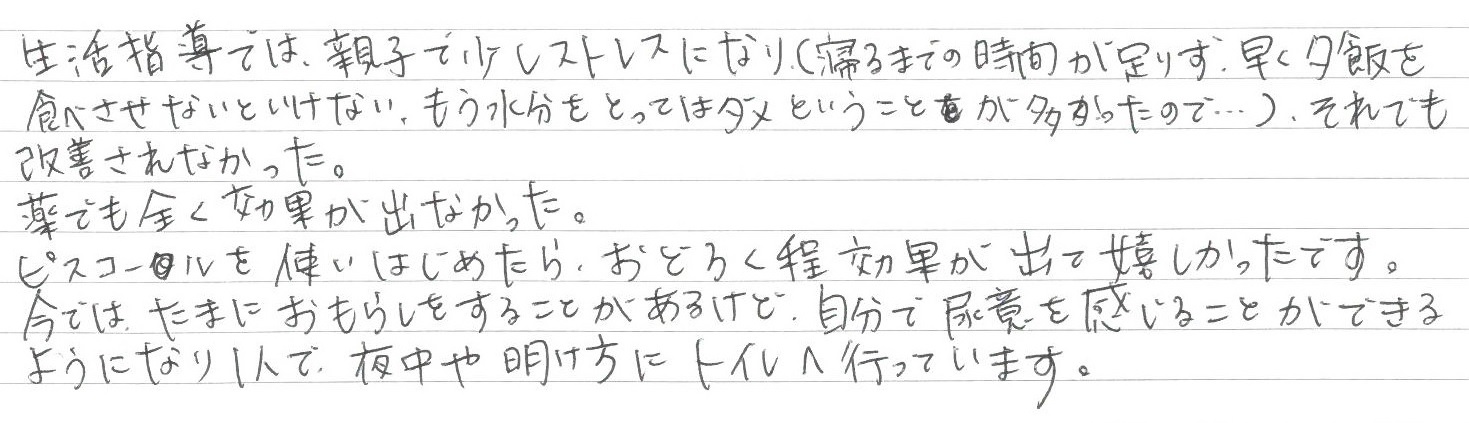 生活指導では、親子で少しストレスになり、(寝るまでの時間が足りず、早く夕飯を
食べさせないといけない、もう水分をとってはダメということが多かったので…)、それでも
改善されなかった。
薬でも全く効果が出なかった。
ピスコールを使いはじめたら、おどろく程効果が出て嬉しかったです。
今では、たまにおもらしをすることがあるけど、自分で尿意を感じることができる
ようになり1人で、夜中や明け方にトイレへ行っています。